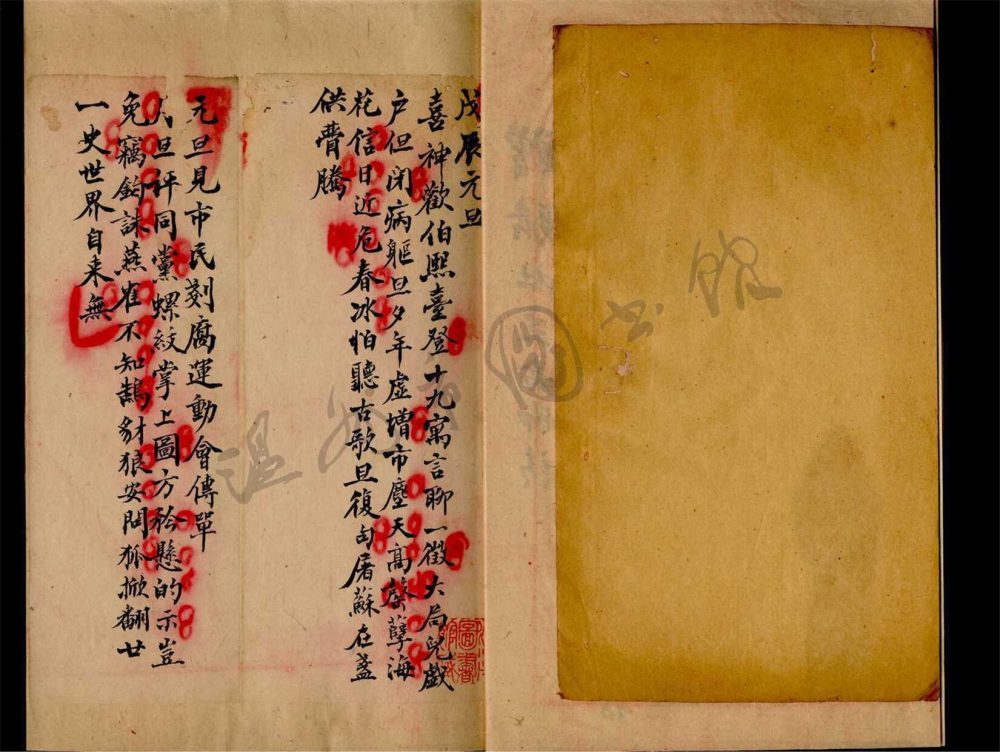 戊辰元旦
喜神歡伯熙臺登十九寓言聊一徵大局兒戲
户但闭病軀旦夕年虛增市廛天高孽海
花信日近危春冰怕聽古歌旦復句屠蘇在盞
供瞢騰
元旦見市民剗腐運動會傳單
旦評同黨螺紋掌上圖方矜懸的示豈
免竊鈎誅燕雀不知鵠豺狼安問狐掀翻廿
一史世界自来無
温州市圖书館